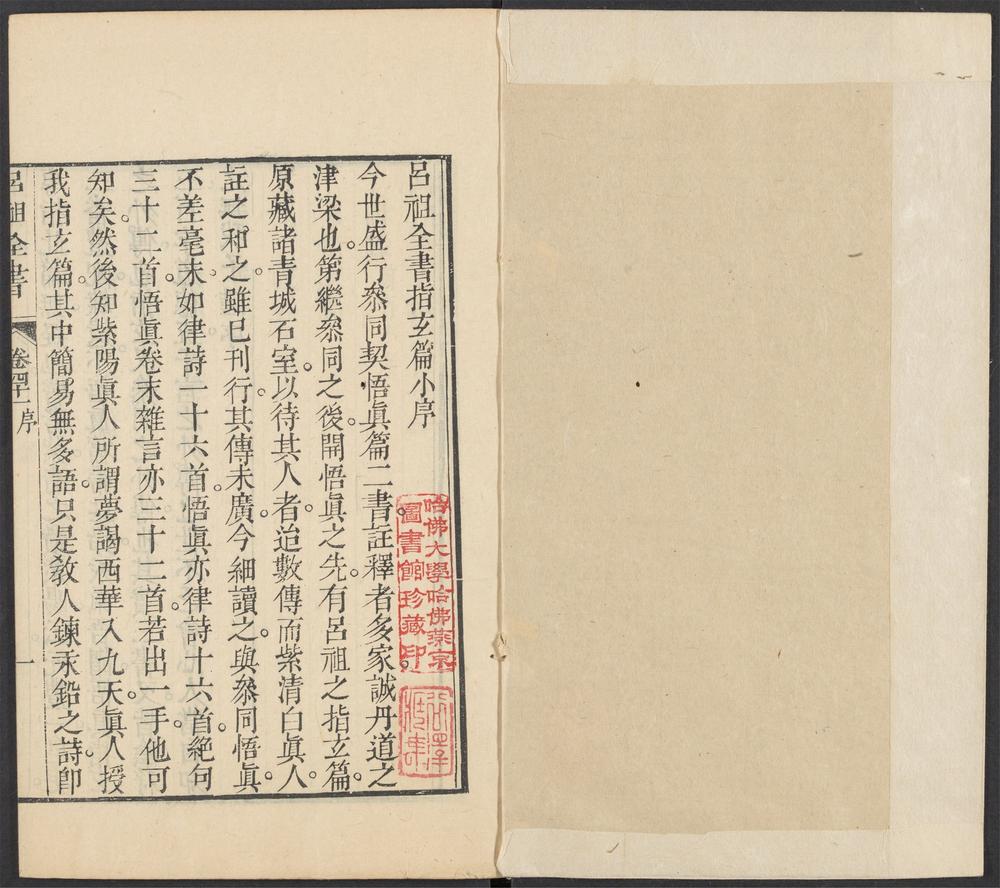 呂祖全書指玄篇小序
今世盛行叅同契悟眞篇二書。註釋者多家。誠丹道之
津梁也。第繼叅同之後。開悟眞之先。有呂祖之指玄篇。
原藏諸青城石室。以待其人者。迨數傳而紫清白眞人。
註之。和之。雖已刊行。其傳未廣。今細讀之。與叅同悟眞。
不差毫末。如律詩一十六首。悟眞亦律詩十六首。絶句
三十二首。悟眞卷末雜言亦三十二首。若出一手。他可
知矣。然後知紫陽眞人所謂夢謁西華入九天。眞人授
我指玄篇。其中簡易無多語。只是教人鍊汞鉛之詩。卽
呂祖全書
卷四十一 序
一
哈佛大學哈佛燕京
圖書館珍藏印